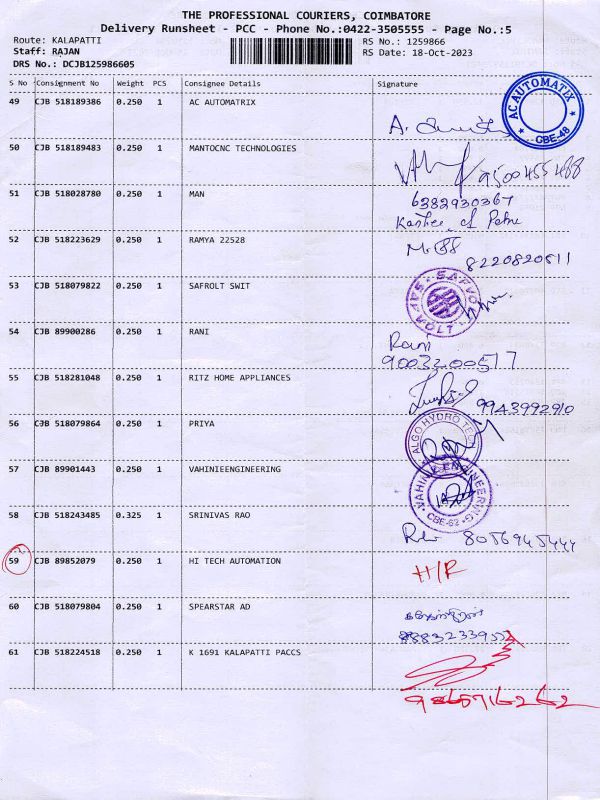 THE PROFESSIONAL COURIERS, COIMBATORE
Delivery Runsheet - PCC - Phone No.:0422-3505555 - Page No.:5
Route: KALAPATTI RS No.: 1259866
Staff: RAJAN RS Date: 18-Oct-2023
DRS No.: DCJB125986605
S No Consignment No Weight PCS Consignee Details Signature
49 CJB 518189386 0.250 1 AC AUTOMATRIX
AC AUTOMATIX
CBE-48
50 CJB 518189483 0.250 1 MANTOCNC TECHNOLOGIES
9500455488
51 CJB 518028780 0.250 1 MAN 6382930367
52 CJB 518223629 0.250 1 RAMYA 22528
8220820811
53 CJB 518079822 0.250 1 SAFROLT SWIT
54 CJB 89900286 0.250 1 RANI Rani
9003200517
55 CJB 518281048 0.250 1 RITZ HOME APPLIANCES
9943992910
56 CJB 518079864 0.250 1 PRIYA ALGO HYDRO TECH
57 CJB 89901443 0.250 1 VAHINIEENGINEERING VAHINI ENGINEERING
CBE-62
58 CJB 518243485 0.325 1 SRINIVAS RAO
8056945444
59 CJB 89852079 0.250 1 HI TECH AUTOMATION H/R
60 CJB 518079804 0.250 1 SPEARSTAR AD
61 CJB 518224518 0.250 1 K 1691 KALAPATTI PACCS